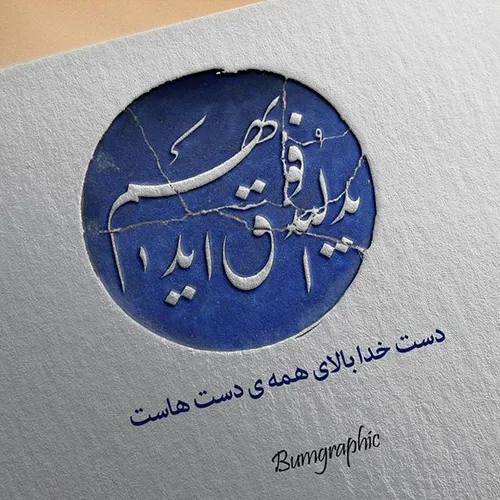 ید الله فوق ایدیهم
دست خدا بالای همه ی دست هاست
Bumgraphic